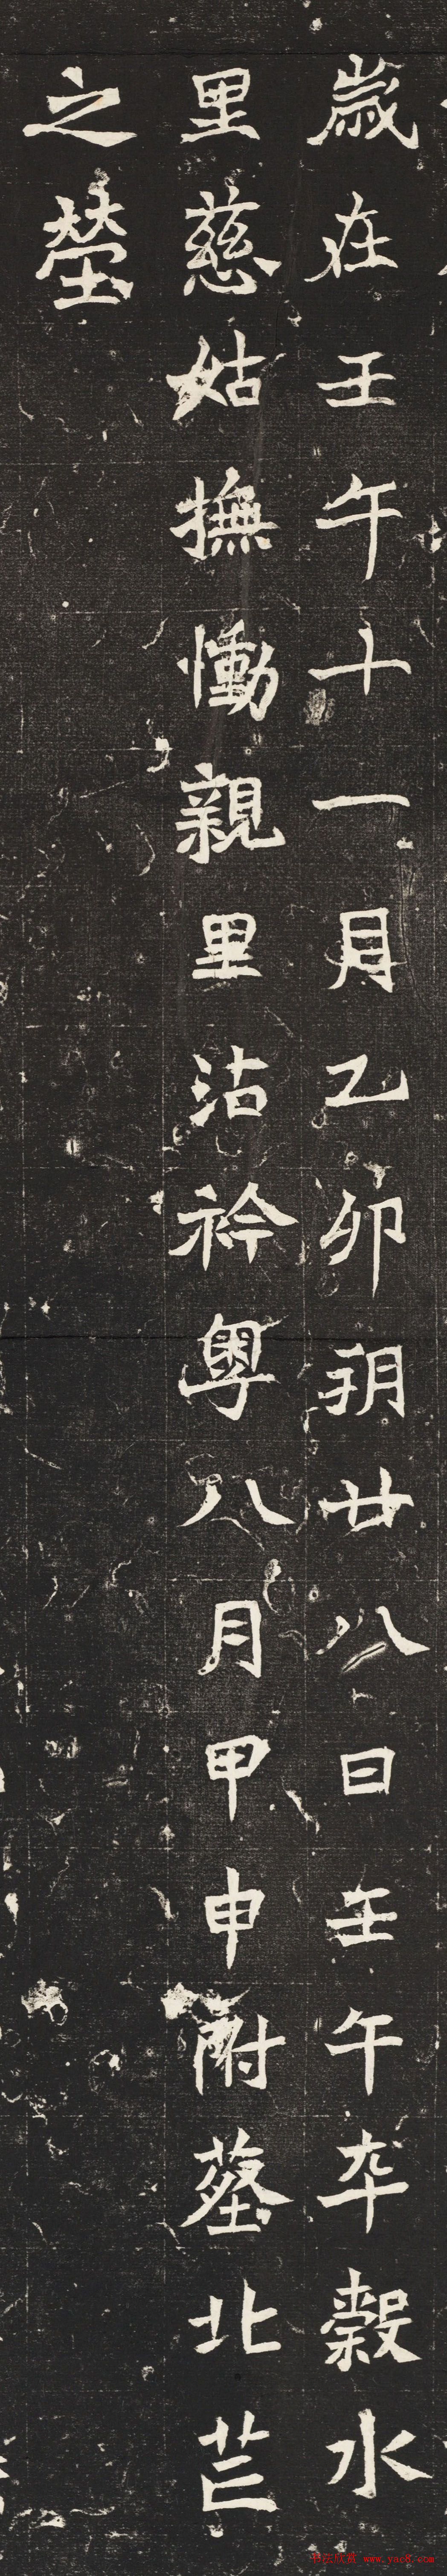 歲在壬午十一月乙卯朔廿八日壬午卒穀水
里慈姑撫慟親里沾衿粵八月甲申祔葬北芒
之塋
www.yac8.com